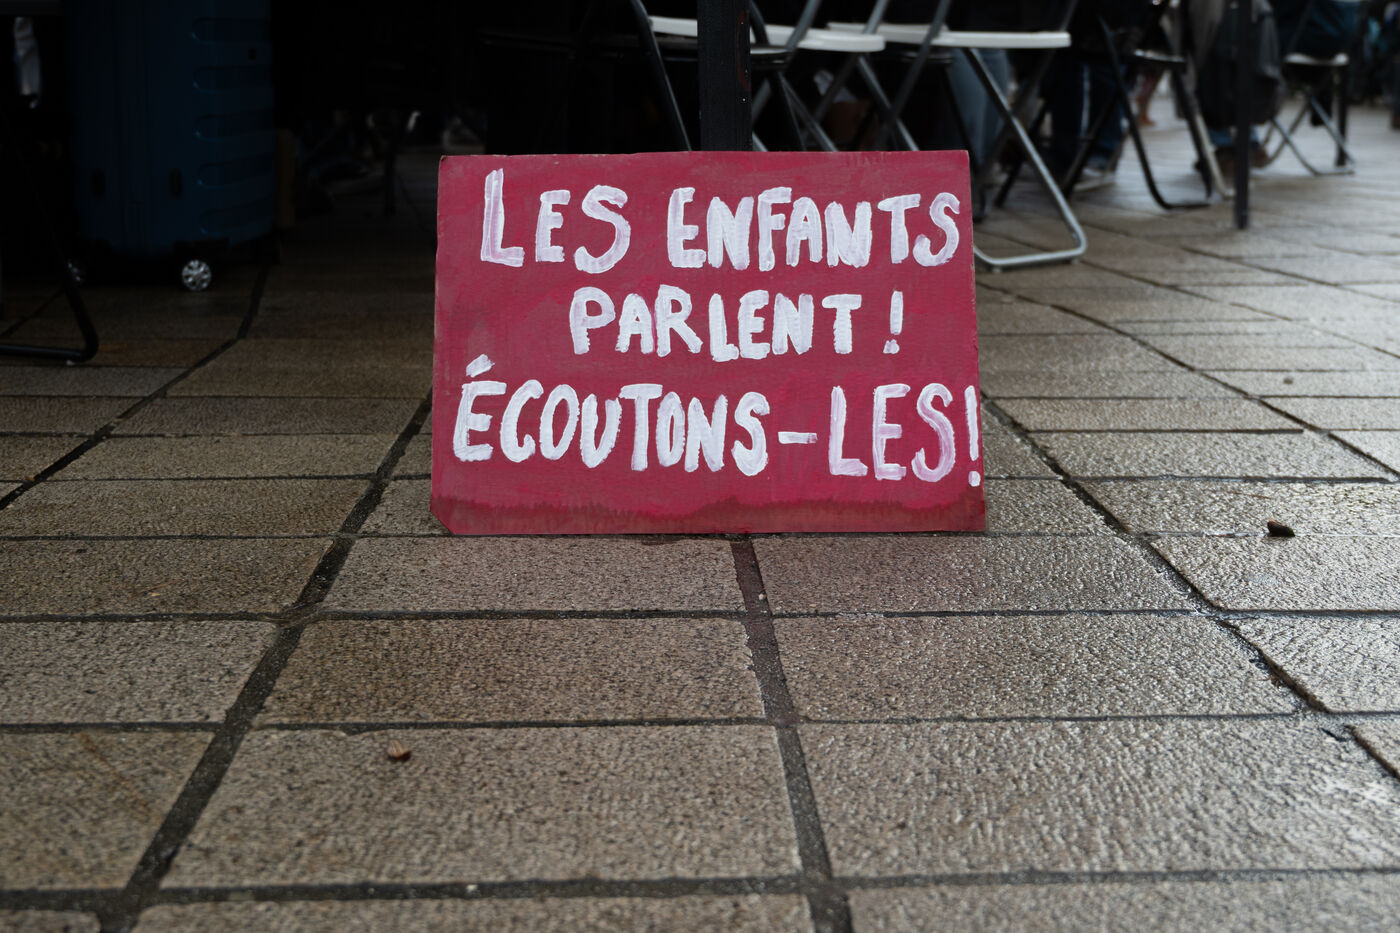 LES ENFANTS
PARLENT !
ÉCOUTONS-LES!